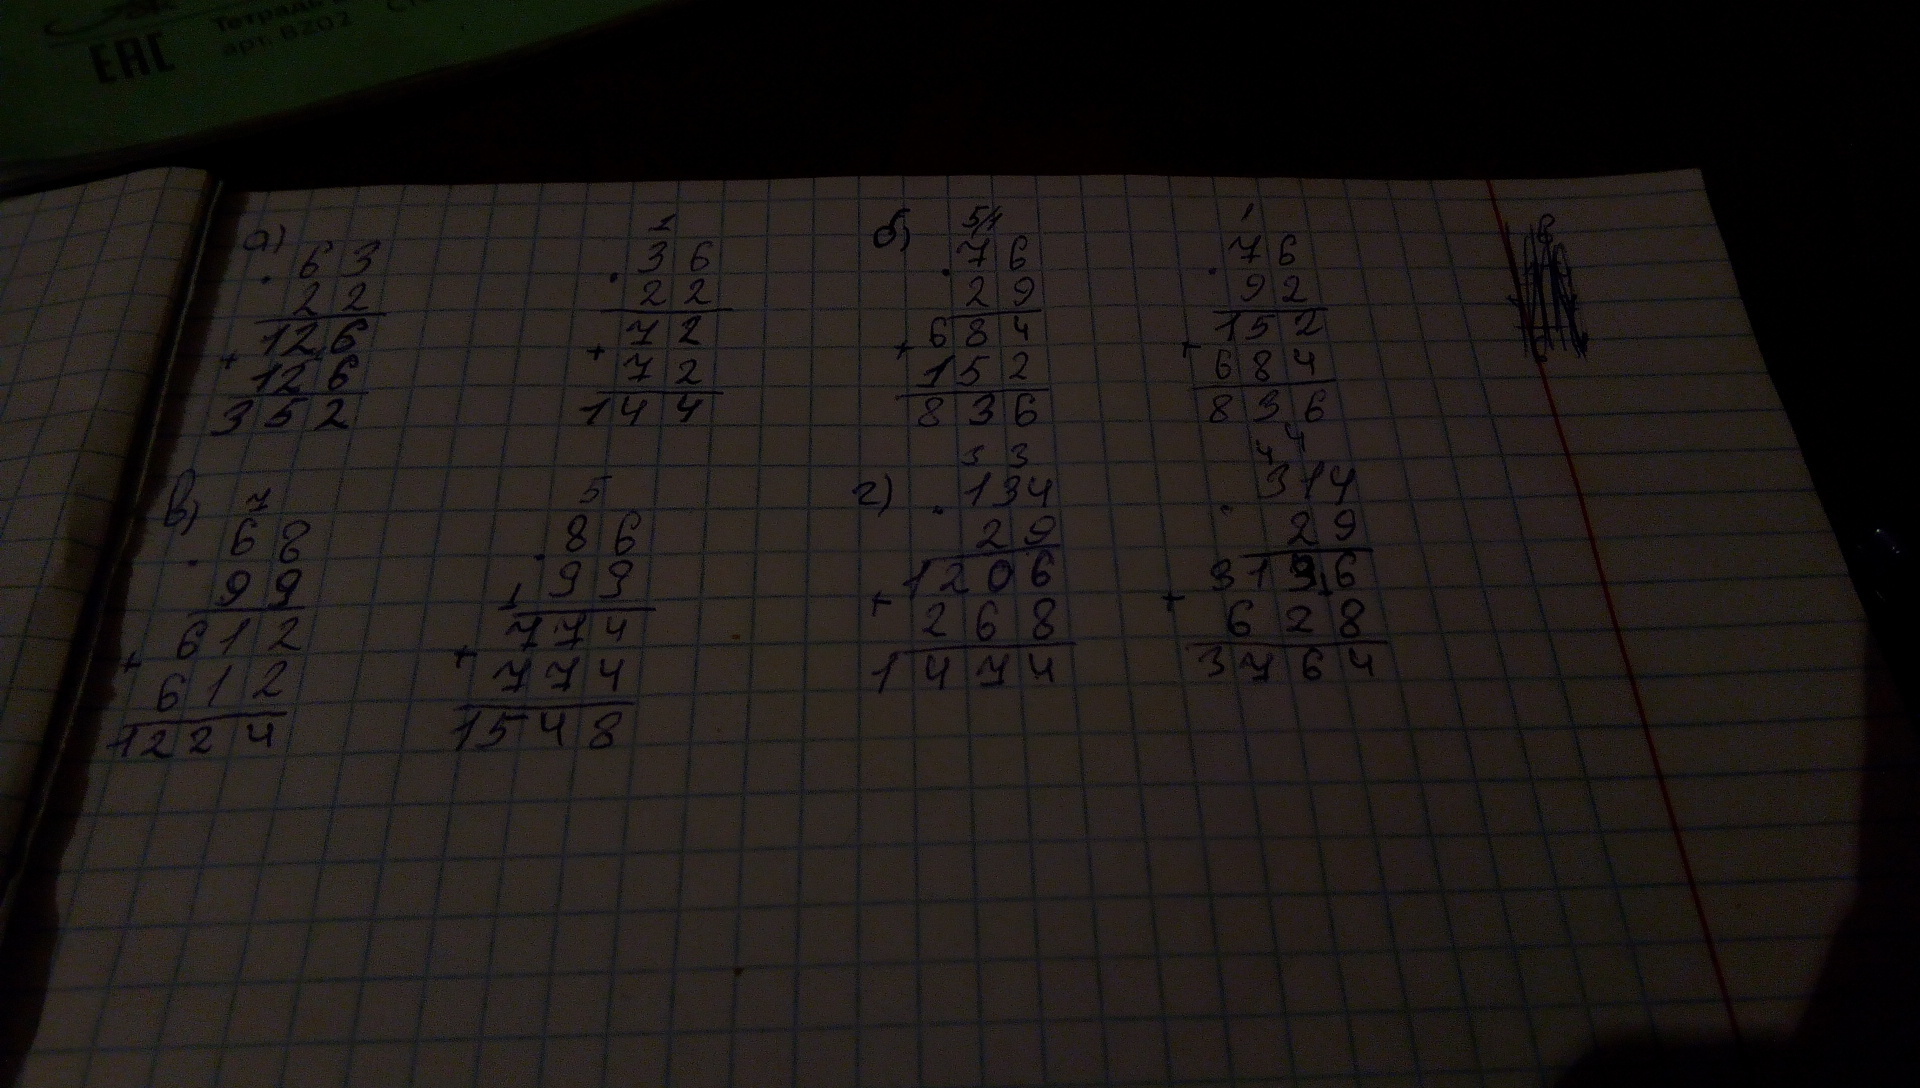 Тетрадь
ЕАС
арт. 6202
а)
63
22
126
+
126
352
1
36
22
72
+
72
144
б)
54
76
29
684
+
152
836
1
76
92
152
+
684
836
в)
7
68
99
612
+
612
1224
5
86
99
1
774
+
774
1548
г)
3 3
134
29
1206
+
268
1474
4
314
29
+
628
3764